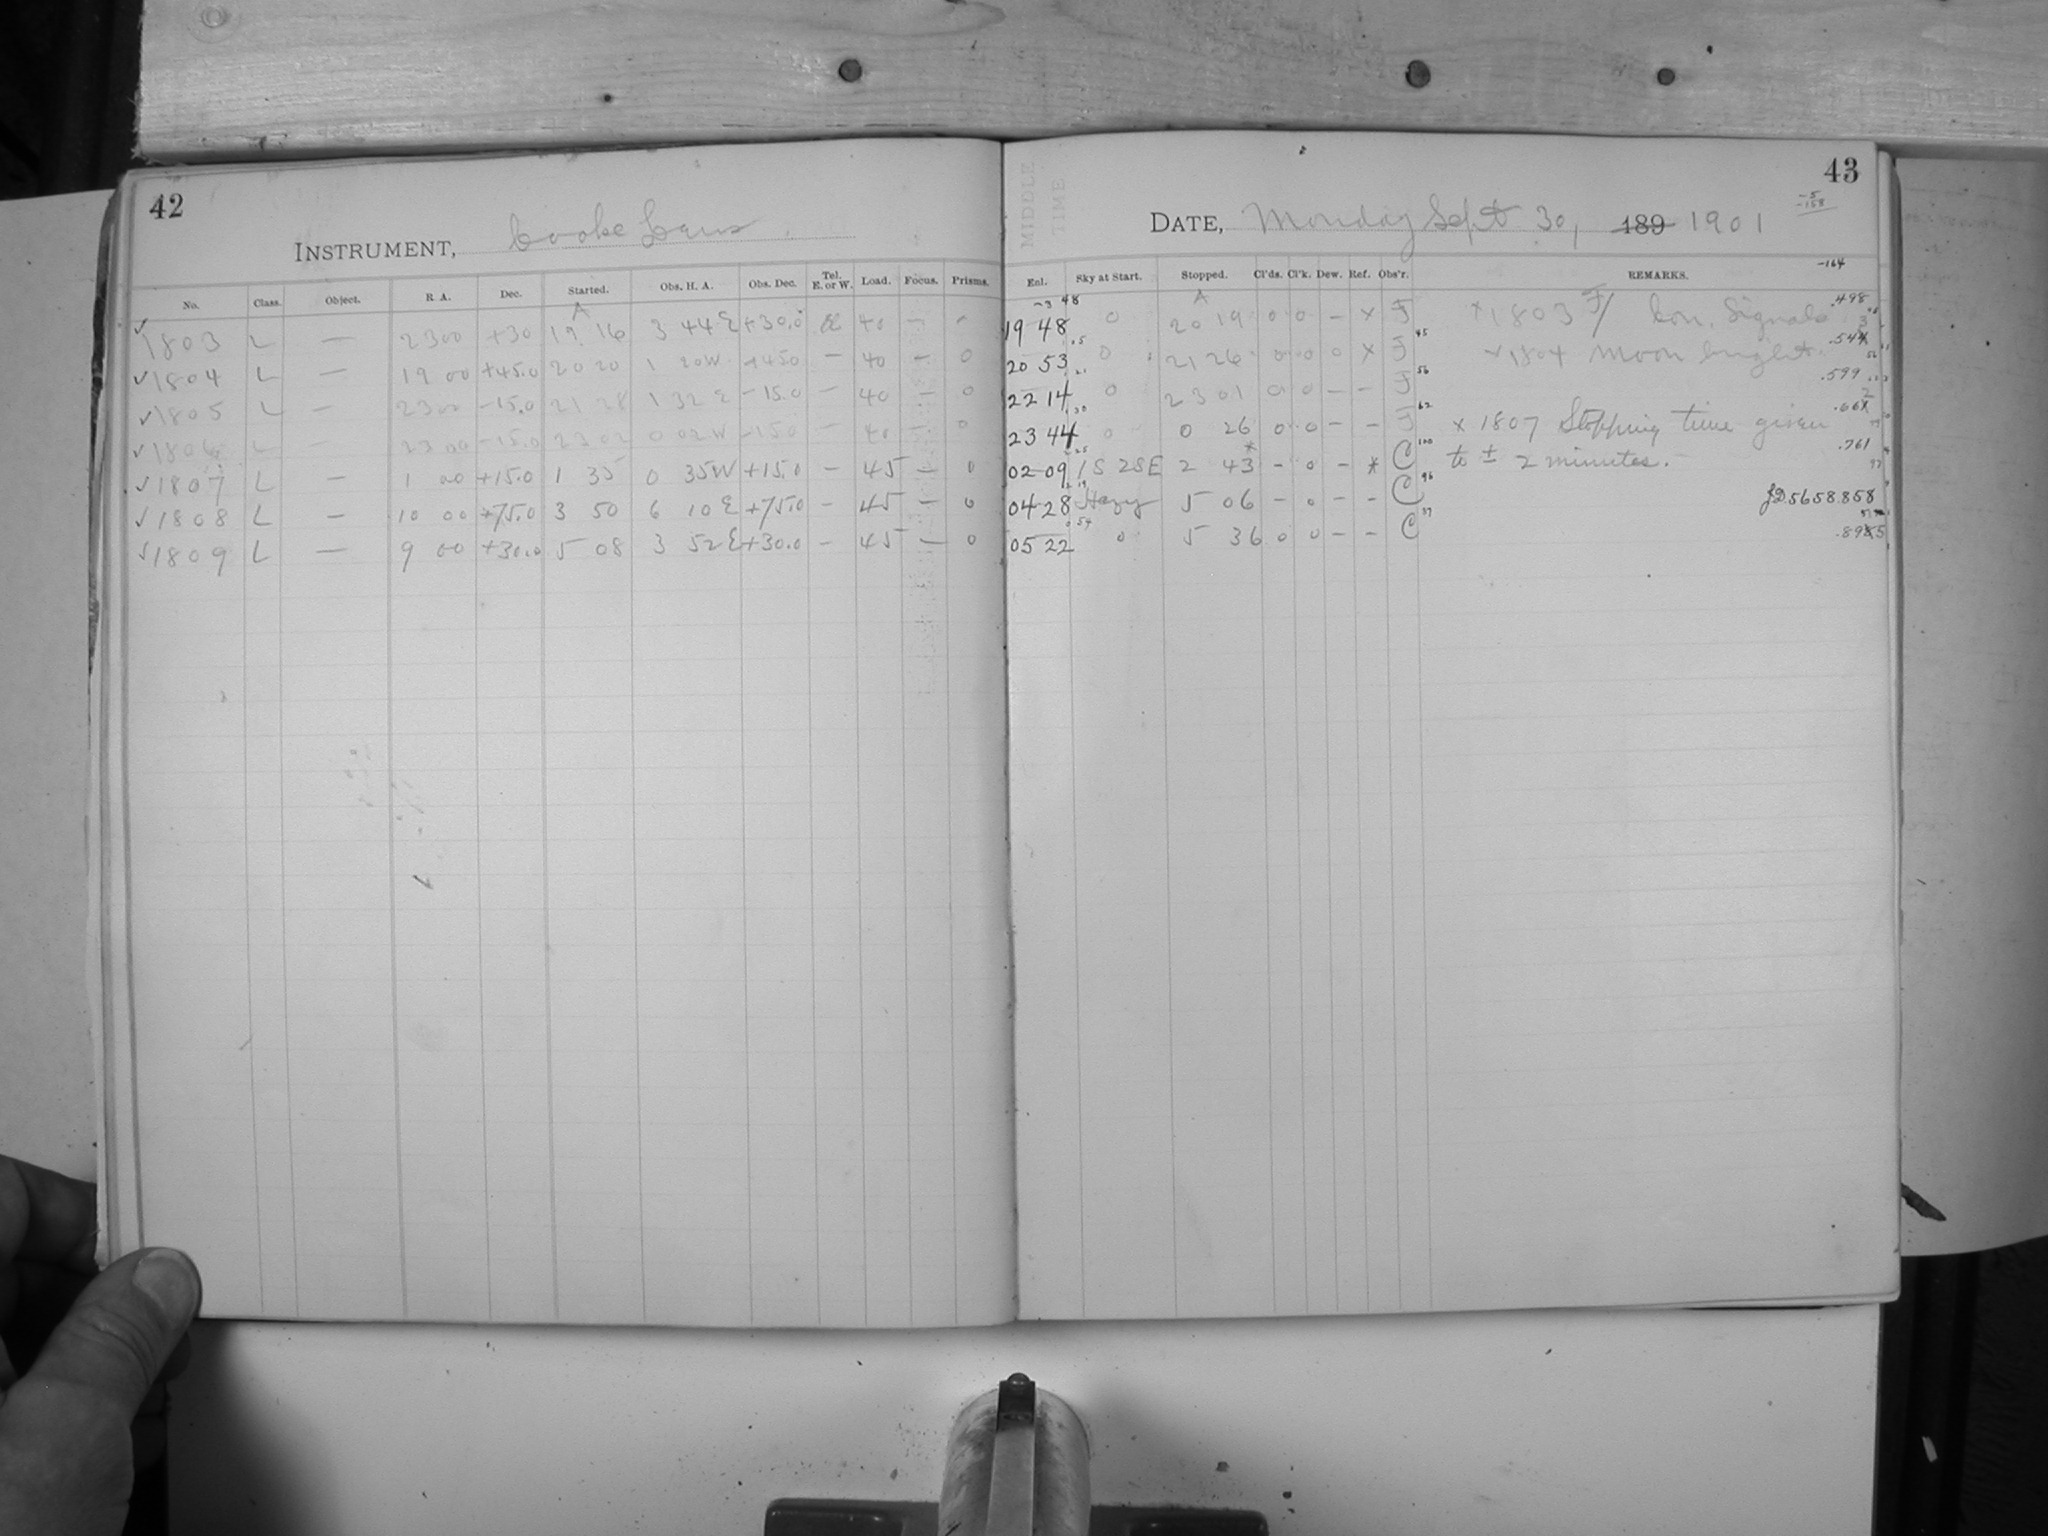 42
INSTRUMENT, Cooke Lens.
No. Class. Object. R. A. Dec. Started. Obs. H. A. Obs. Dec. Tel. E. or W. Load. Focus. Prisms.
A
✓ 1803 L — 23 00 +30 19 16 3 44 E +30.0 40 —
✓ 1804 L — 19 00 +45.0 20 20 1 20 W +45.0 — 40 — 0
✓ 1805 L — 23 00 -15.0 21 28 1 32 E -15.0 — 40 — 0
✓ 1806 L — 23 00 -15.0 23 02 0 02 W -15.0 — 40 — 0
✓ 1807 L — 1 00 +15.0 1 35 0 35 W +15.0 — 45 — 0
✓ 1808 L — 10 00 +75.0 3 50 6 10 E +75.0 — 45 — 0
✓ 1809 L — 9 00 +30.0 5 08 3 52 E +30.0 — 45 — 0
43
MIDDLE TIME
-5
-158
DATE, Monday Sept 30, 189 1901
-164
Enl. Sky at Start. Stopped. Cl'ds. Cl'k. Dew. Ref. Obs'r. REMARKS.
-3 48 A .498
19 48 0 20 19 0 0 — x F x 1803 F/ Con. Signals
20 53 0 21 26 0 0 0 x F 45 x 1804 Moon bright. .54
22 14 0 23 01 0 0 — — F 56 .599
23 44 0 0 26 0 0 — — F 62 x 1807 Stopping time given .66
02 09 1S 2SE 2 43* — 0 — * C 100 to ± 2 minutes. .761
04 28 Hazy 5 06 — 0 — — C 96 JD5658.858
05 22 0 5 36 0 0 — — C 37 .895